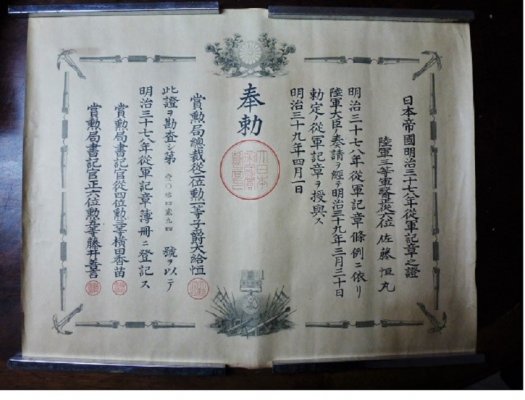 日本帝國明治三十七八年從軍記章之證
陸軍三等軍醫從八位 佐藤恒丸
明治三十七八年從軍記章條例ニ依リ
陸軍大臣ノ奏請ヲ經テ明治三十九年三月三十日
勅定ノ從軍記章ヲ授與ス
明治三十九年四月一日
奉勅
賞勲局總裁從二位勲一等子爵大給恒
此證ヲ勘査シ第 號ヲ以テ
明治三十七八年從軍記章簿冊ニ登記ス
賞勲局書記官從四位勲三等横田香苗
賞勲局書記官正六位勲五等藤井善言